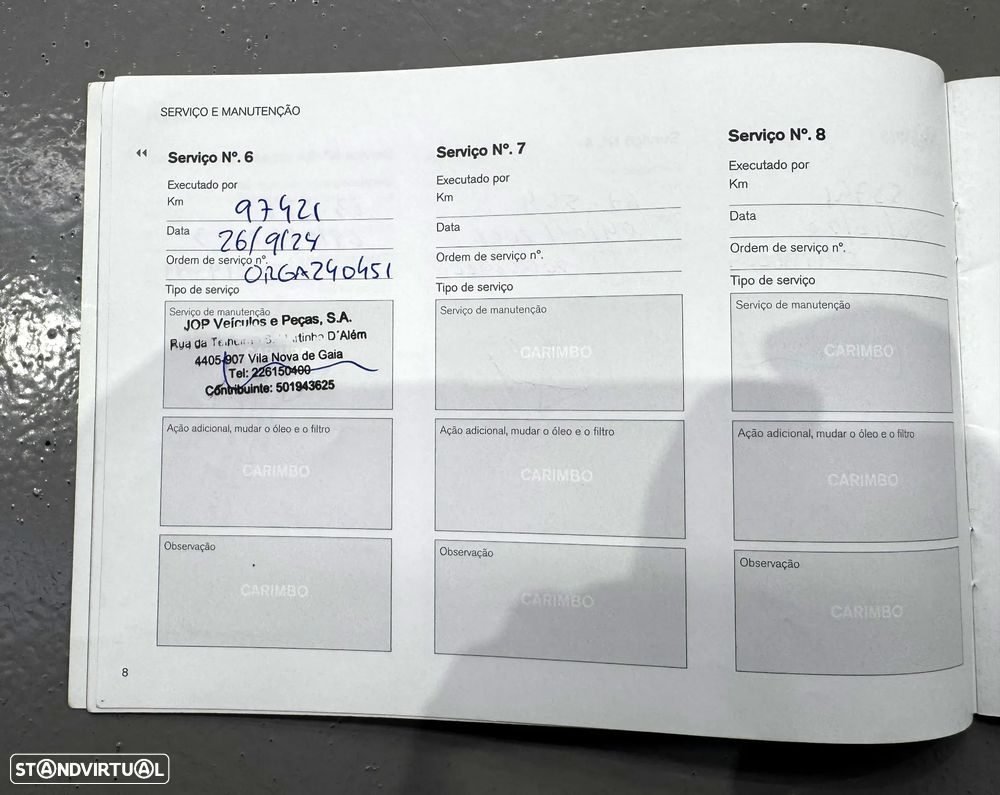 SERVIÇO E MANUTENÇÃO
Serviço Nº. 6
Executado por
Km 97421
Data 26/9/24
Ordem de serviço nº. ORGA240451
Tipo de serviço
Serviço de manutenção
JOP Veículos e Peças, S.A.
Rua da
D'Além
4405-907 Vila Nova de Gaia
Tel: 226150400
Contribuinte: 501943625
Ação adicional, mudar o óleo e o filtro
CARIMBO
Observação
CARIMBO
Serviço Nº. 7
Executado por
Km
Data
Ordem de serviço nº.
Tipo de serviço
Serviço de manutenção
CARIMBO
Ação adicional, mudar o óleo e o filtro
CARIMBO
Observação
CARIMBO
Serviço Nº. 8
Executado por
Km
Data
Ordem de serviço nº.
Tipo de serviço
Serviço de manutenção
CARIMBO
Ação adicional, mudar o óleo e o filtro
CARIMBO
Observação
CARIMBO
8
STANDVIRTUAL